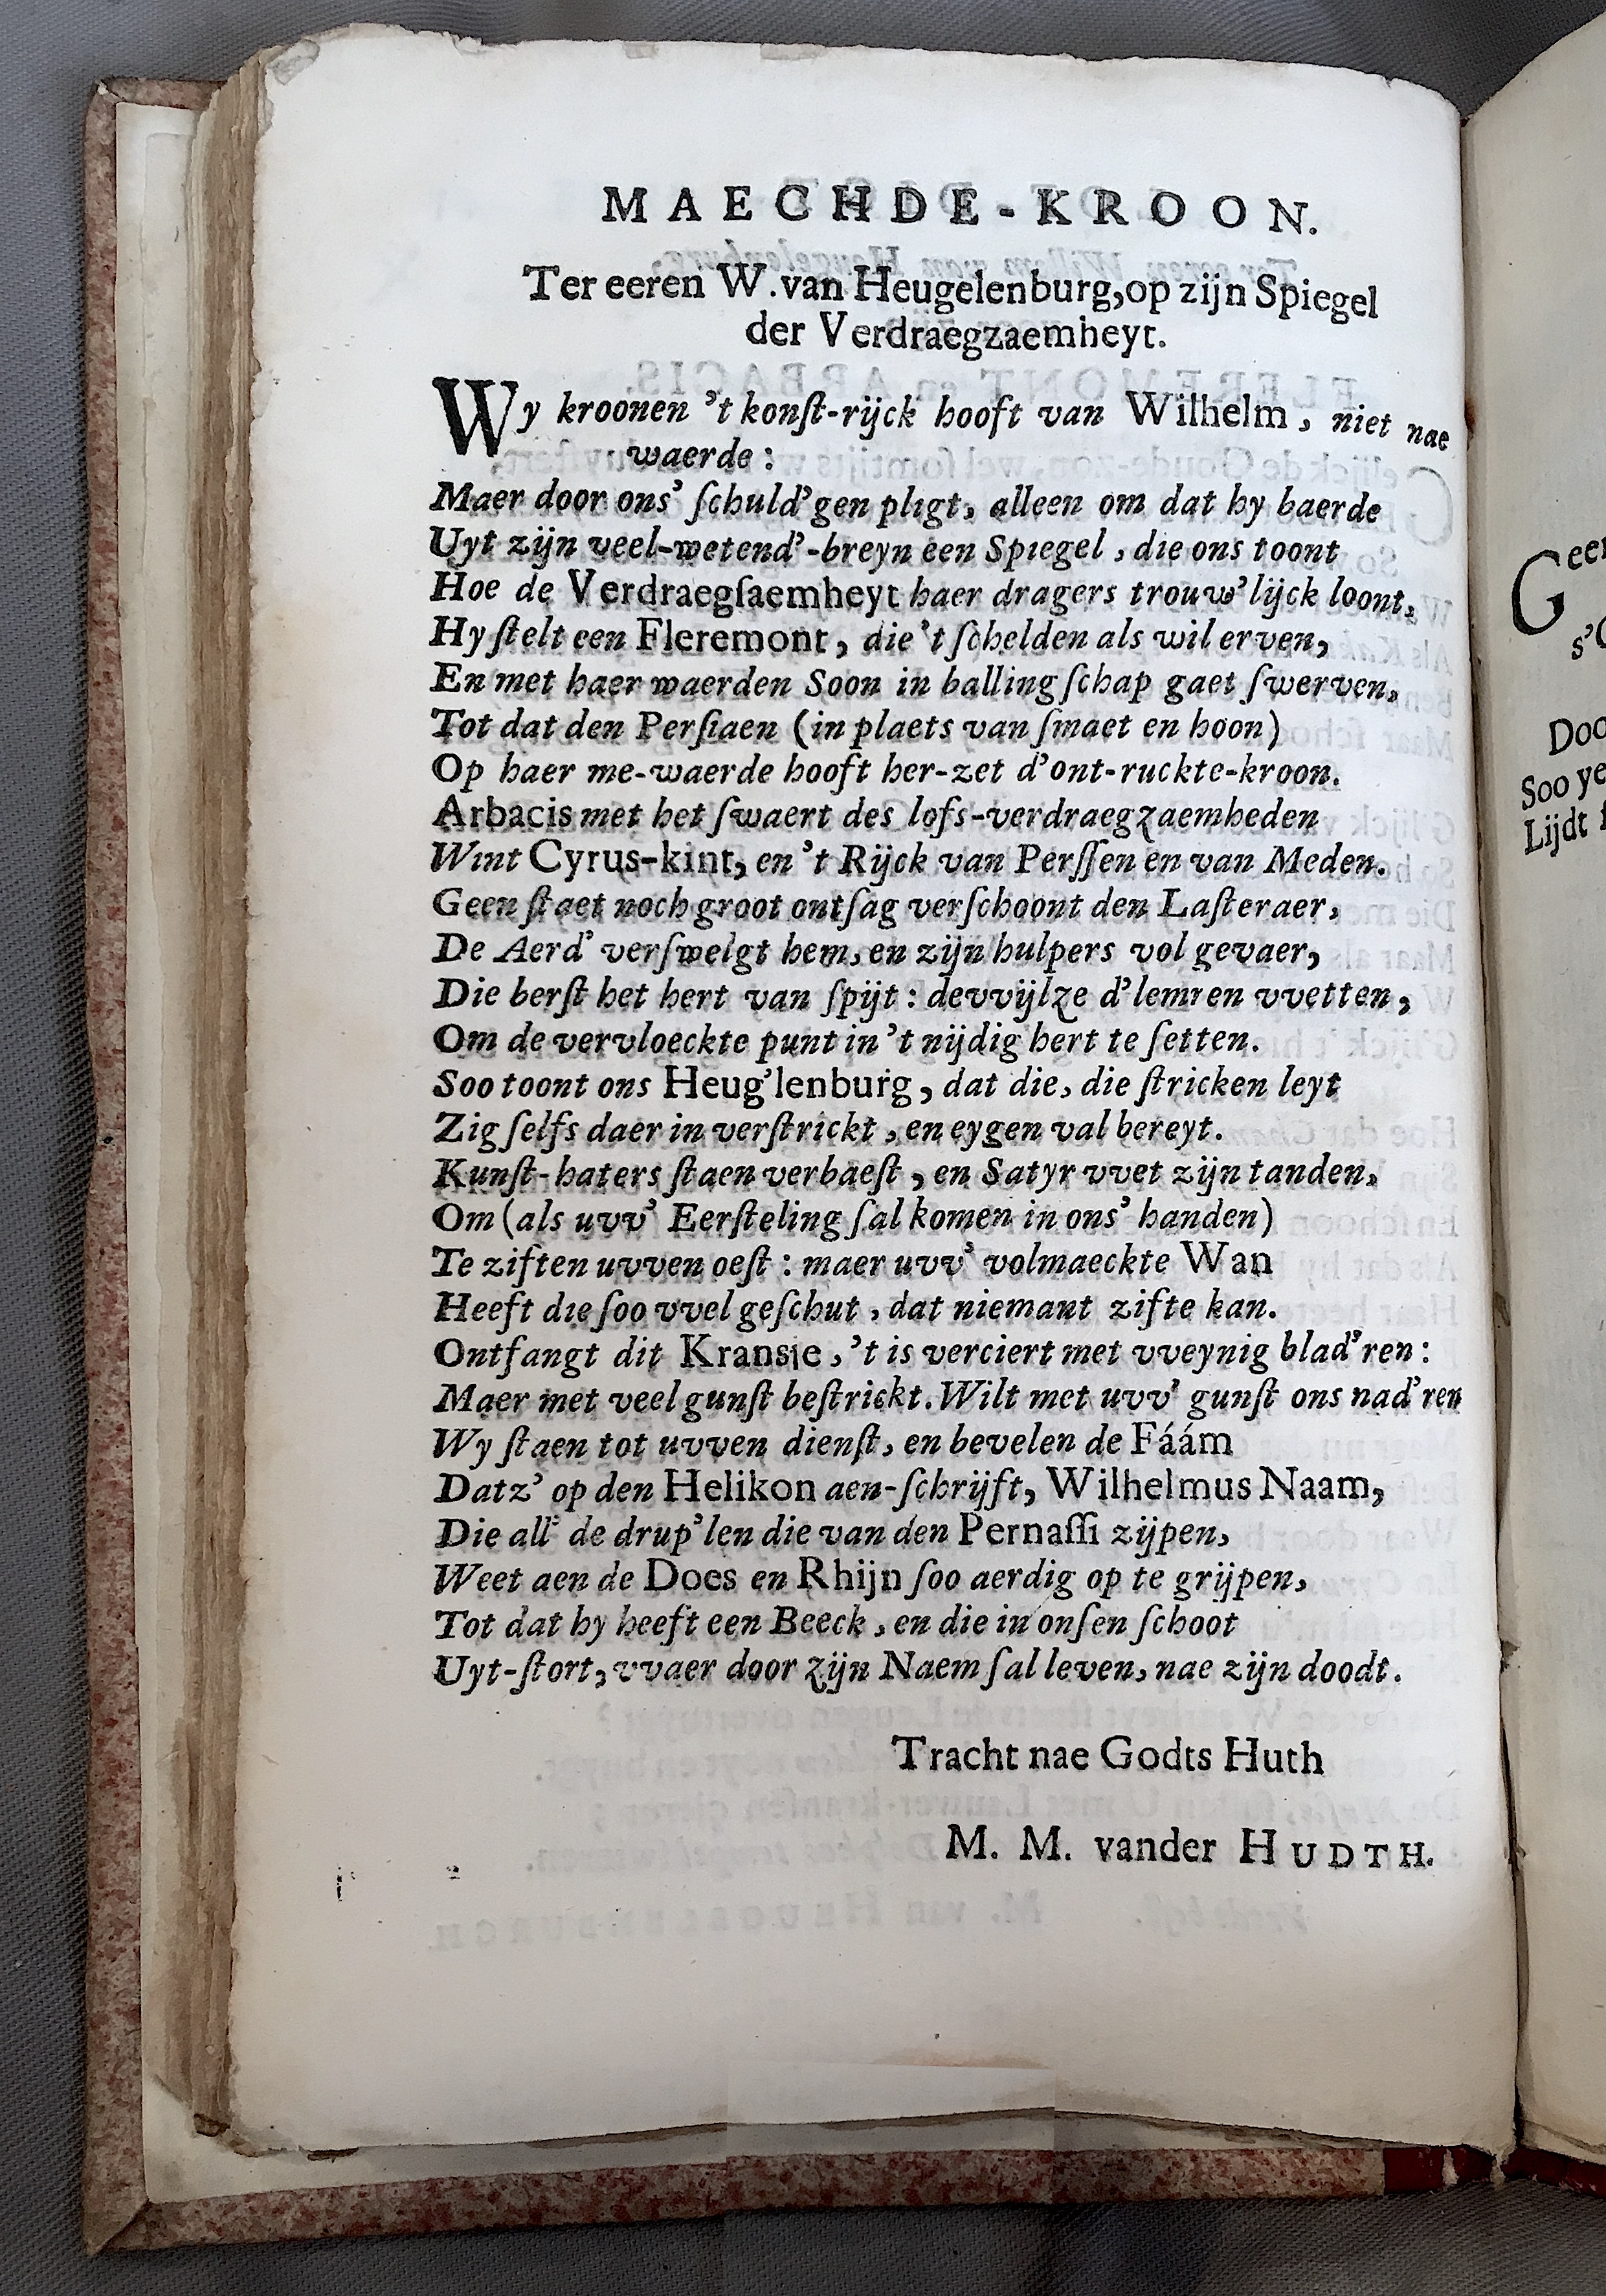 MAECHDE-KROON.
Ter eeren W. van Heugelenburg, op zijn Spiegel
der Verdraegzaemheyt.
Wy kroonen 't konſt-rijck hooft van Wilhelm, niet nae
waerde:
Maer door ons' ſchuld'gen pligt, alleen om dat hy baerde
Uyt zijn veel-wetend'-breyn een Spiegel, die ons toont
Hoe de Verdraegſaemheyt haer dragers trouw'lijck loont,
Hy ſtelt een Fleremont, die 't ſchelden als wil erven,
En met haer waerden Soon in balling ſchap gaet ſwerven,
Tot dat den Perſiaen (in plaets van ſmaet en hoon)
Op haer me-waerde hooft her-zet d'ont-ruckte-kroon.
Arbacis met het ſwaert des lofs-verdraegzaemheden
Wint Cyrus-kint, en 't Rijck van Perſſen en van Meden.
Geen ſtaet noch groot ontſag verſchoont den Laſteraer,
De Aerd' verſwelgt hem, en zijn hulpers vol gevaer,
Die berſt het hert van ſpijt: devvijl ze d'lemren vvetten,
Om de vervloeckte punt in 't nijdig hert te ſetten.
Soo toont ons Heug'lenburg, dat die, die ſtricken leyt
Zig ſelfs daer in verſtrickt, en eygen val bereyt.
Kunſt-haters ſtaen verbaeſt, en Satyr vvet zijn tanden,
Om (als uvv' Eerſteling ſal komen in ons' handen)
Te ziften uvven oeſt: maer uvv' volmaeckte Wan
Heeft die ſoo vvel geſchut, dat niemant zifte kan.
Ontfangt dit Kransje, 't is verciert met vveynig blad'ren:
Maer met veel gunſt beſtrickt. Wilt met uvv' gunſt ons nad'ren
Wy ſtaen tot uvven dienſt, en bevelen de Fáám
Datz' op den Helikon aen-ſchrijft, Wilhelmus Naam,
Die all' de drup'len die van den Pernaſſi zijpen,
Weet aen de Does en Rhijn ſoo aerdig op te grijpen,
Tot dat hy heeft een Beeck, en die in onſen ſchoot
Uyt-ſtort, vvaer door zijn Naem ſal leven, nae zijn doodt.
Tracht nae Godts Huth
M. M. vander HUDTH.
Geer
s'
Doo
Soo ye
Lijdt